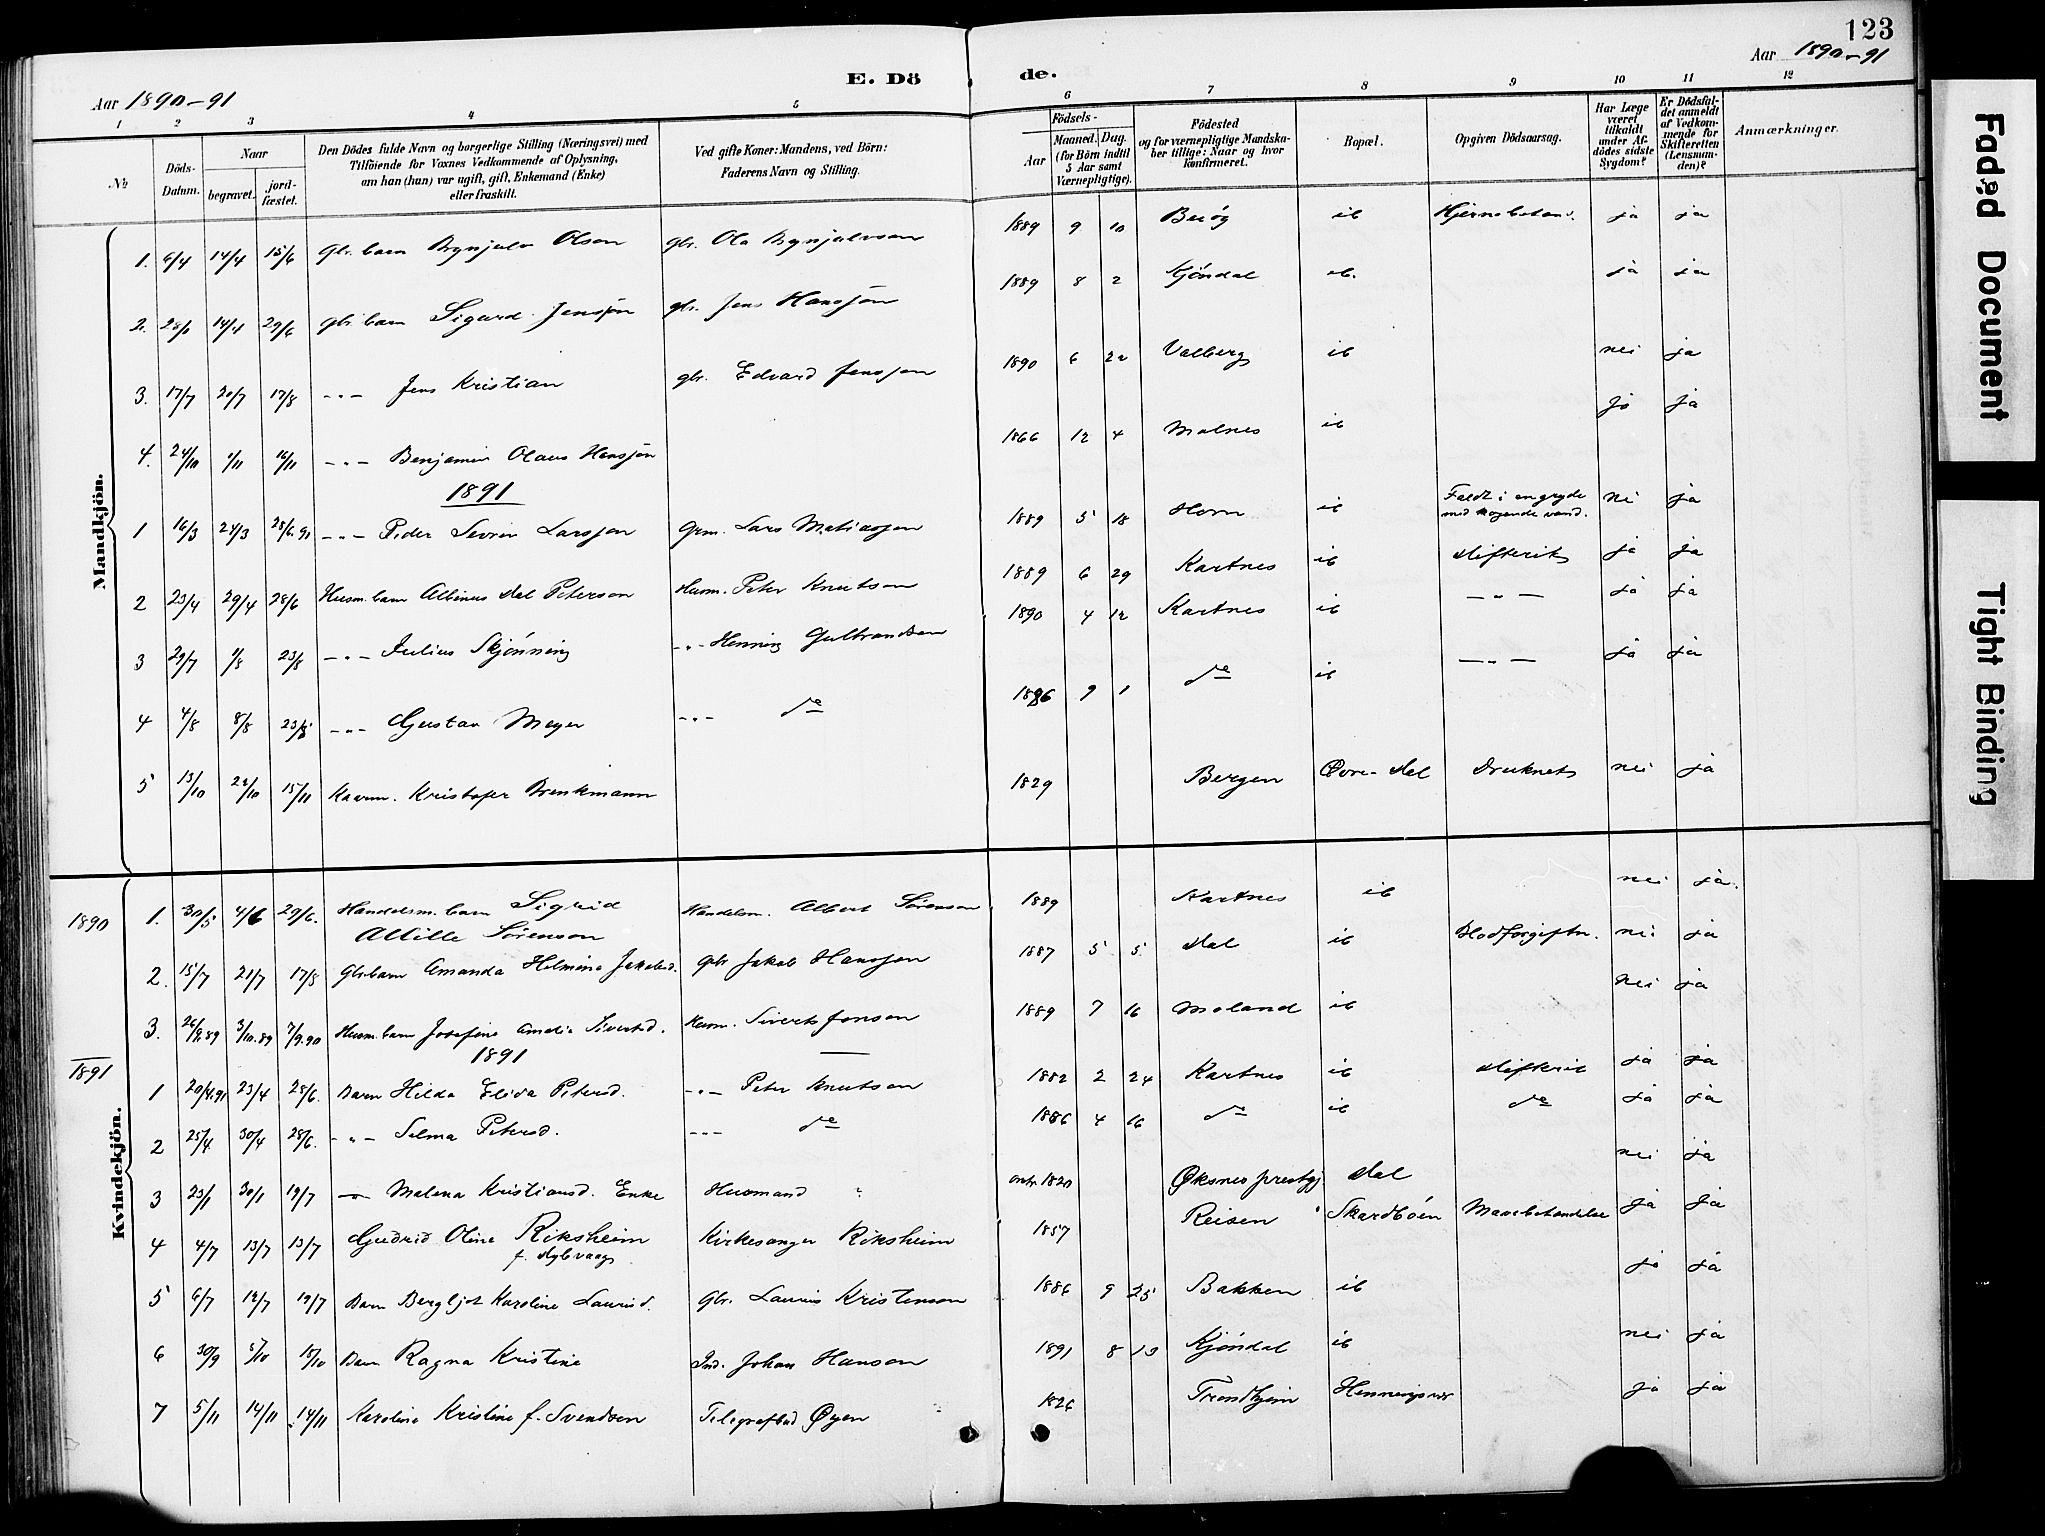 123
E. Dö de.
Aar 1890-91
Aar 1890-91
1 2 3 4 5 6 7 8 9 10 11 12
No
Döds-Datum.
Naar
begravet.
jord-fæstet.
Den Dödes fulde Navn og borgerlige Stilling (Næringsvei) med
Tilföiende for Voxnes Vedkommende af Oplysning,
om han (hun) var ugift, gift, Enkemand (Enke)
eller fraskilt.
Ved gifte Koner: Mandens, ved Börn:
Faderens Navn og Stilling.
Födsels-
Aar
Maaned. Dag.
(for Börn indtil
5 Aar samt
Værnepligtige).
Födested
og for værnepligtige Mandska-
ber tillige: Naar og hvor
konfirmeret.
Bopæl.
Opgiven Dödsaarsag.
Har Læge
været
tilkaldt
under Af-
dödes sidste
Sygdom?
Er Dödsfal-
det anmeldt
af Vedkom-
mende for
Skifteretten
(Lensman-
den)?
Anmærkninger.
Mandkjön.
1. 6/4 14/4 15/6 Gbr. barn Brynjulv Olson gbr. Ola Brynjulvson 1889 9 10 ib ja ja
2. 14/4 29/6 gbr. barn Sigurd Jensjön gbr. Jens Hansjön 1889 8 2 Kjöndal ib. ja ja
3. 17/7 20/7 17/8 -"- Jens Kristian gbr. Edvard Jensjon 1890 6 Valberg ib nei ja
4. 24/10 1/11 16/11 -"- Benjamin Olaus Hansjön 1866 12 4 Malnes ib ja ja
1891
1 16/3 24/3 28/6.91 -"- Peder Sevrin Larsjon Lars Matiasjon 1889 5 18 Horn ib Faldt i en gryde
med kogende vand. nei ja
2 23/4 29/4 28/6 Husm. barn Albinus Dal Peterson Husm. Peter Knutson 1889 6 29 Kartnes ib difterit ja ja
3 29/7 1/8 23/8 -"- Julius Skjönning -"- Henning Gulbrandsen 1890 4 12 Kartnes ib -"- ja ja
4 4/8 8/8 23/8 -"- Gustav Meyer -"- do 1886 9 1 do ib -"- ja ja
5 13/10 15/11 Kaarm. Kristofer Brinkmann 1829 Bergen Övre-Dal Druknet nei ja
Kvindekjön.
1890 1. 30/5 4/6 29/6. Handelsm. barn Sigrid
Sörenson Handelsm. Albert Sörenson 1889 Kartnes ib nei ja.
2. 15/7 21/7 17/8 Gbr. barn Amanda Helmine Jakobsd. gbr Jakob Hansjon 1887 5 5 Dal ib Blodforgiftn. nei ja
3. 26/9.89 3/10.89 7/9.90 Husm. barn Josefine Amalie Sivertsd. Husm. Sivert Jonson 1889 7 16 Moland ib nei ja
1891
1891
1 20/4.91 23/4 28/6. Barn Hilda Elida Petersd. -"- Peter Knutson 1882 2 24 Kartnes ib difterit ja ja
2 25/4 30/4 28/6. -"- Selma Petersd. -"- do 1886 4 16 do ib do ja ja
3 23/1 30/1 19/7 Malena Kristiansd. Enke Husmand 1820 Øksnes prestgj Dal nei ja
4 4/7 13/7 13/7 Gudrid Oline Riksheim
f. Dybvaag Kirkesanger Riksheim 1857 Reisen Skardböen Mavebetændelse ja ja
5 6/7 12/7 19/7 Barn Bergljot Karoline Laurisd. Gbr. Lauris Kristenson 1886 9 25 Bakken ib ja ja
6 30/9 5/10 18/10 Barn Ragna Kristine Ind. Johan Hanson 1891 8 Kjöndal ib nei ja
7 5/11 14/11 14/11 Karoline Kristine f. Svendsen Telegrafbud Øyen 1826 Trondhjem Henningsvær ja ja
Faded Document
Tight Binding